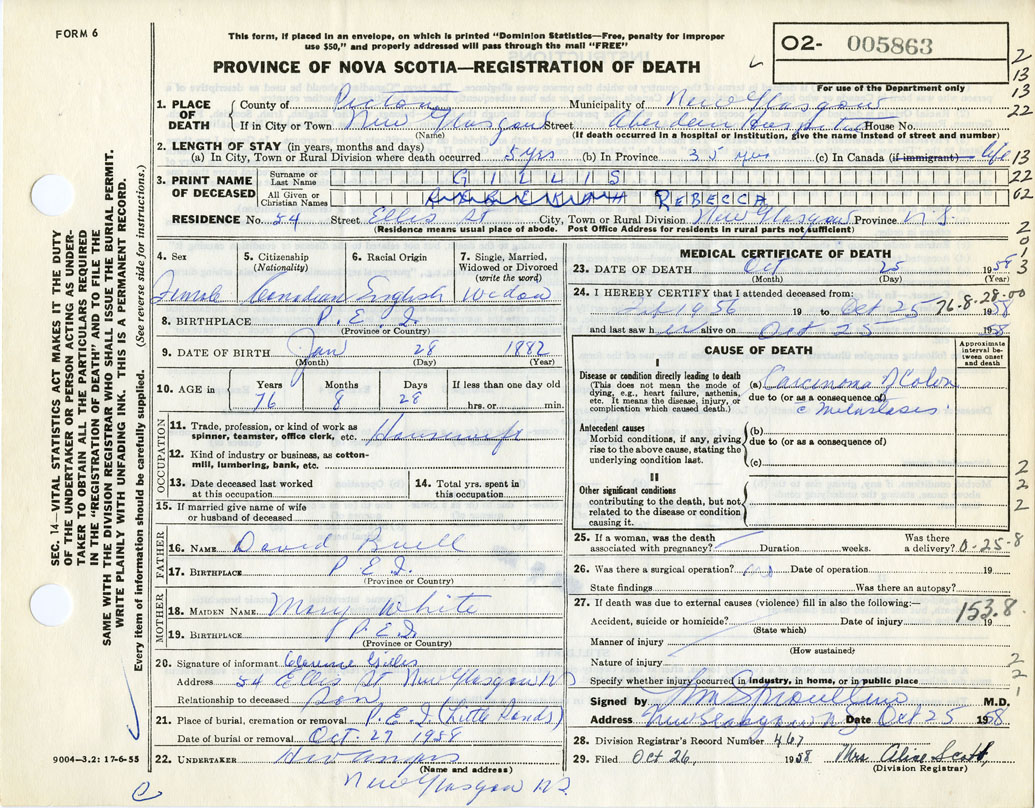 FORM 6
This form, if placed in an envelope, on which is printed "Dominion Statistics—Free, penalty for improper
use $50," and properly addressed will pass through the mail "FREE"
PROVINCE OF NOVA SCOTIA—REGISTRATION OF DEATH
O2- 005863
For use of the Department only
1. PLACE OF DEATH
County of Pictou Municipality of New Glasgow
If in City or Town New Glasgow Street Aberdeen Hospital House No.
(Name) (If death occurred in a hospital or institution, give the name instead of street and number)
2. LENGTH OF STAY (in years, months and days)
(a) In City, Town or Rural Division where death occurred 5 yrs (b) In Province 35 yrs (c) In Canada (if immigrant) life
3. PRINT NAME OF DECEASED
Surname or Last Name GILLIS
All Given or Christian Names REBECCA
RESIDENCE No. 54 Street Ellis St City, Town or Rural Division New Glasgow Province N.S.
(Residence means usual place of abode. Post Office Address for residents in rural parts not sufficient)
4. Sex Female
5. Citizenship (Nationality) Canadian
6. Racial Origin English
7. Single, Married, Widowed or Divorced (write the word) Widow
8. BIRTHPLACE P.E.I.
(Province or Country)
9. DATE OF BIRTH Jan 28 1882
(Month) (Day) (Year)
10. AGE in Years 76 Months 8 Days 28 If less than one day old hrs. or min.
OCCUPATION
11. Trade, profession, or kind of work as spinner, teamster, office clerk, etc. Housewife
12. Kind of industry or business, as cotton-mill, lumbering, bank, etc.
13. Date deceased last worked at this occupation
14. Total yrs. spent in this occupation
15. If married give name of wife or husband of deceased
FATHER
16. NAME David Buell
17. BIRTHPLACE P.E.I.
(Province or Country)
MOTHER
18. MAIDEN NAME Mary White
19. BIRTHPLACE P.E.I.
(Province or Country)
20. Signature of informant Clarence Gillis
Address 54 Ellis St New Glasgow NS
Relationship to deceased Son
21. Place of burial, cremation or removal P.E.I. (Little Sands)
Date of burial or removal Oct. 27 1958
22. UNDERTAKER
(Name and address)
New Glasgow N.S.
9004—3.2: 17-6-55
MEDICAL CERTIFICATE OF DEATH
23. DATE OF DEATH Oct 25 1958
(Month) (Day) (Year)
24. I HEREBY CERTIFY that I attended deceased from:
1956 19 to Oct 25 1958
76-8-28-00
and last saw h er alive on Oct 25 1958
CAUSE OF DEATH
Approximate interval between onset and death
I
Disease or condition directly leading to death
(This does not mean the mode of dying, e.g., heart failure, asthenia, etc. It means the disease, injury, or complication which caused death.)
(a) Carcinoma of Colon
due to (or as a consequence of)
c Metastases
Antecedent causes
Morbid conditions, if any, giving rise to the above cause, stating the underlying condition last.
(b)
due to (or as a consequence of)
(c)
II
Other significant conditions
contributing to the death, but not related to the disease or condition causing it.
25. If a woman, was the death associated with pregnancy? Duration weeks. Was there a delivery? 0-25-8
26. Was there a surgical operation? no Date of operation 19
State findings Was there an autopsy?
27. If death was due to external causes (violence) fill in also the following:—
153.8
Accident, suicide or homicide? Date of injury 19
(State which)
Manner of injury
(How sustained)
Nature of injury
Specify whether injury occurred in industry, in home, or in public place
Signed by M.D.
Address New Glasgow NS Date Oct 25 1958
28. Division Registrar's Record Number 467
29. Filed Oct 26, 1958 Mrs Aline Scott
(Division Registrar)
SEC. 14—VITAL STATISTICS ACT MAKES IT THE DUTY
OF THE UNDERTAKER OR PERSON ACTING AS UNDER-
TAKER TO OBTAIN ALL THE PARTICULARS REQUIRED
IN THE "REGISTRATION OF DEATH" AND TO FILE THE
SAME WITH THE DIVISION REGISTRAR WHO SHALL ISSUE THE BURIAL PERMIT.
WRITE PLAINLY WITH UNFADING INK. THIS IS A PERMANENT RECORD.
Every item of information should be carefully supplied. (See reverse side for instructions.)
2
13
13
22
13
22
62
2
0
1
3
2
2
2
2
2
1